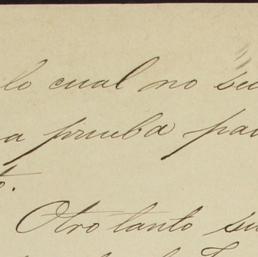 lo cual no su
a prueba par
o.
Otro tanto su